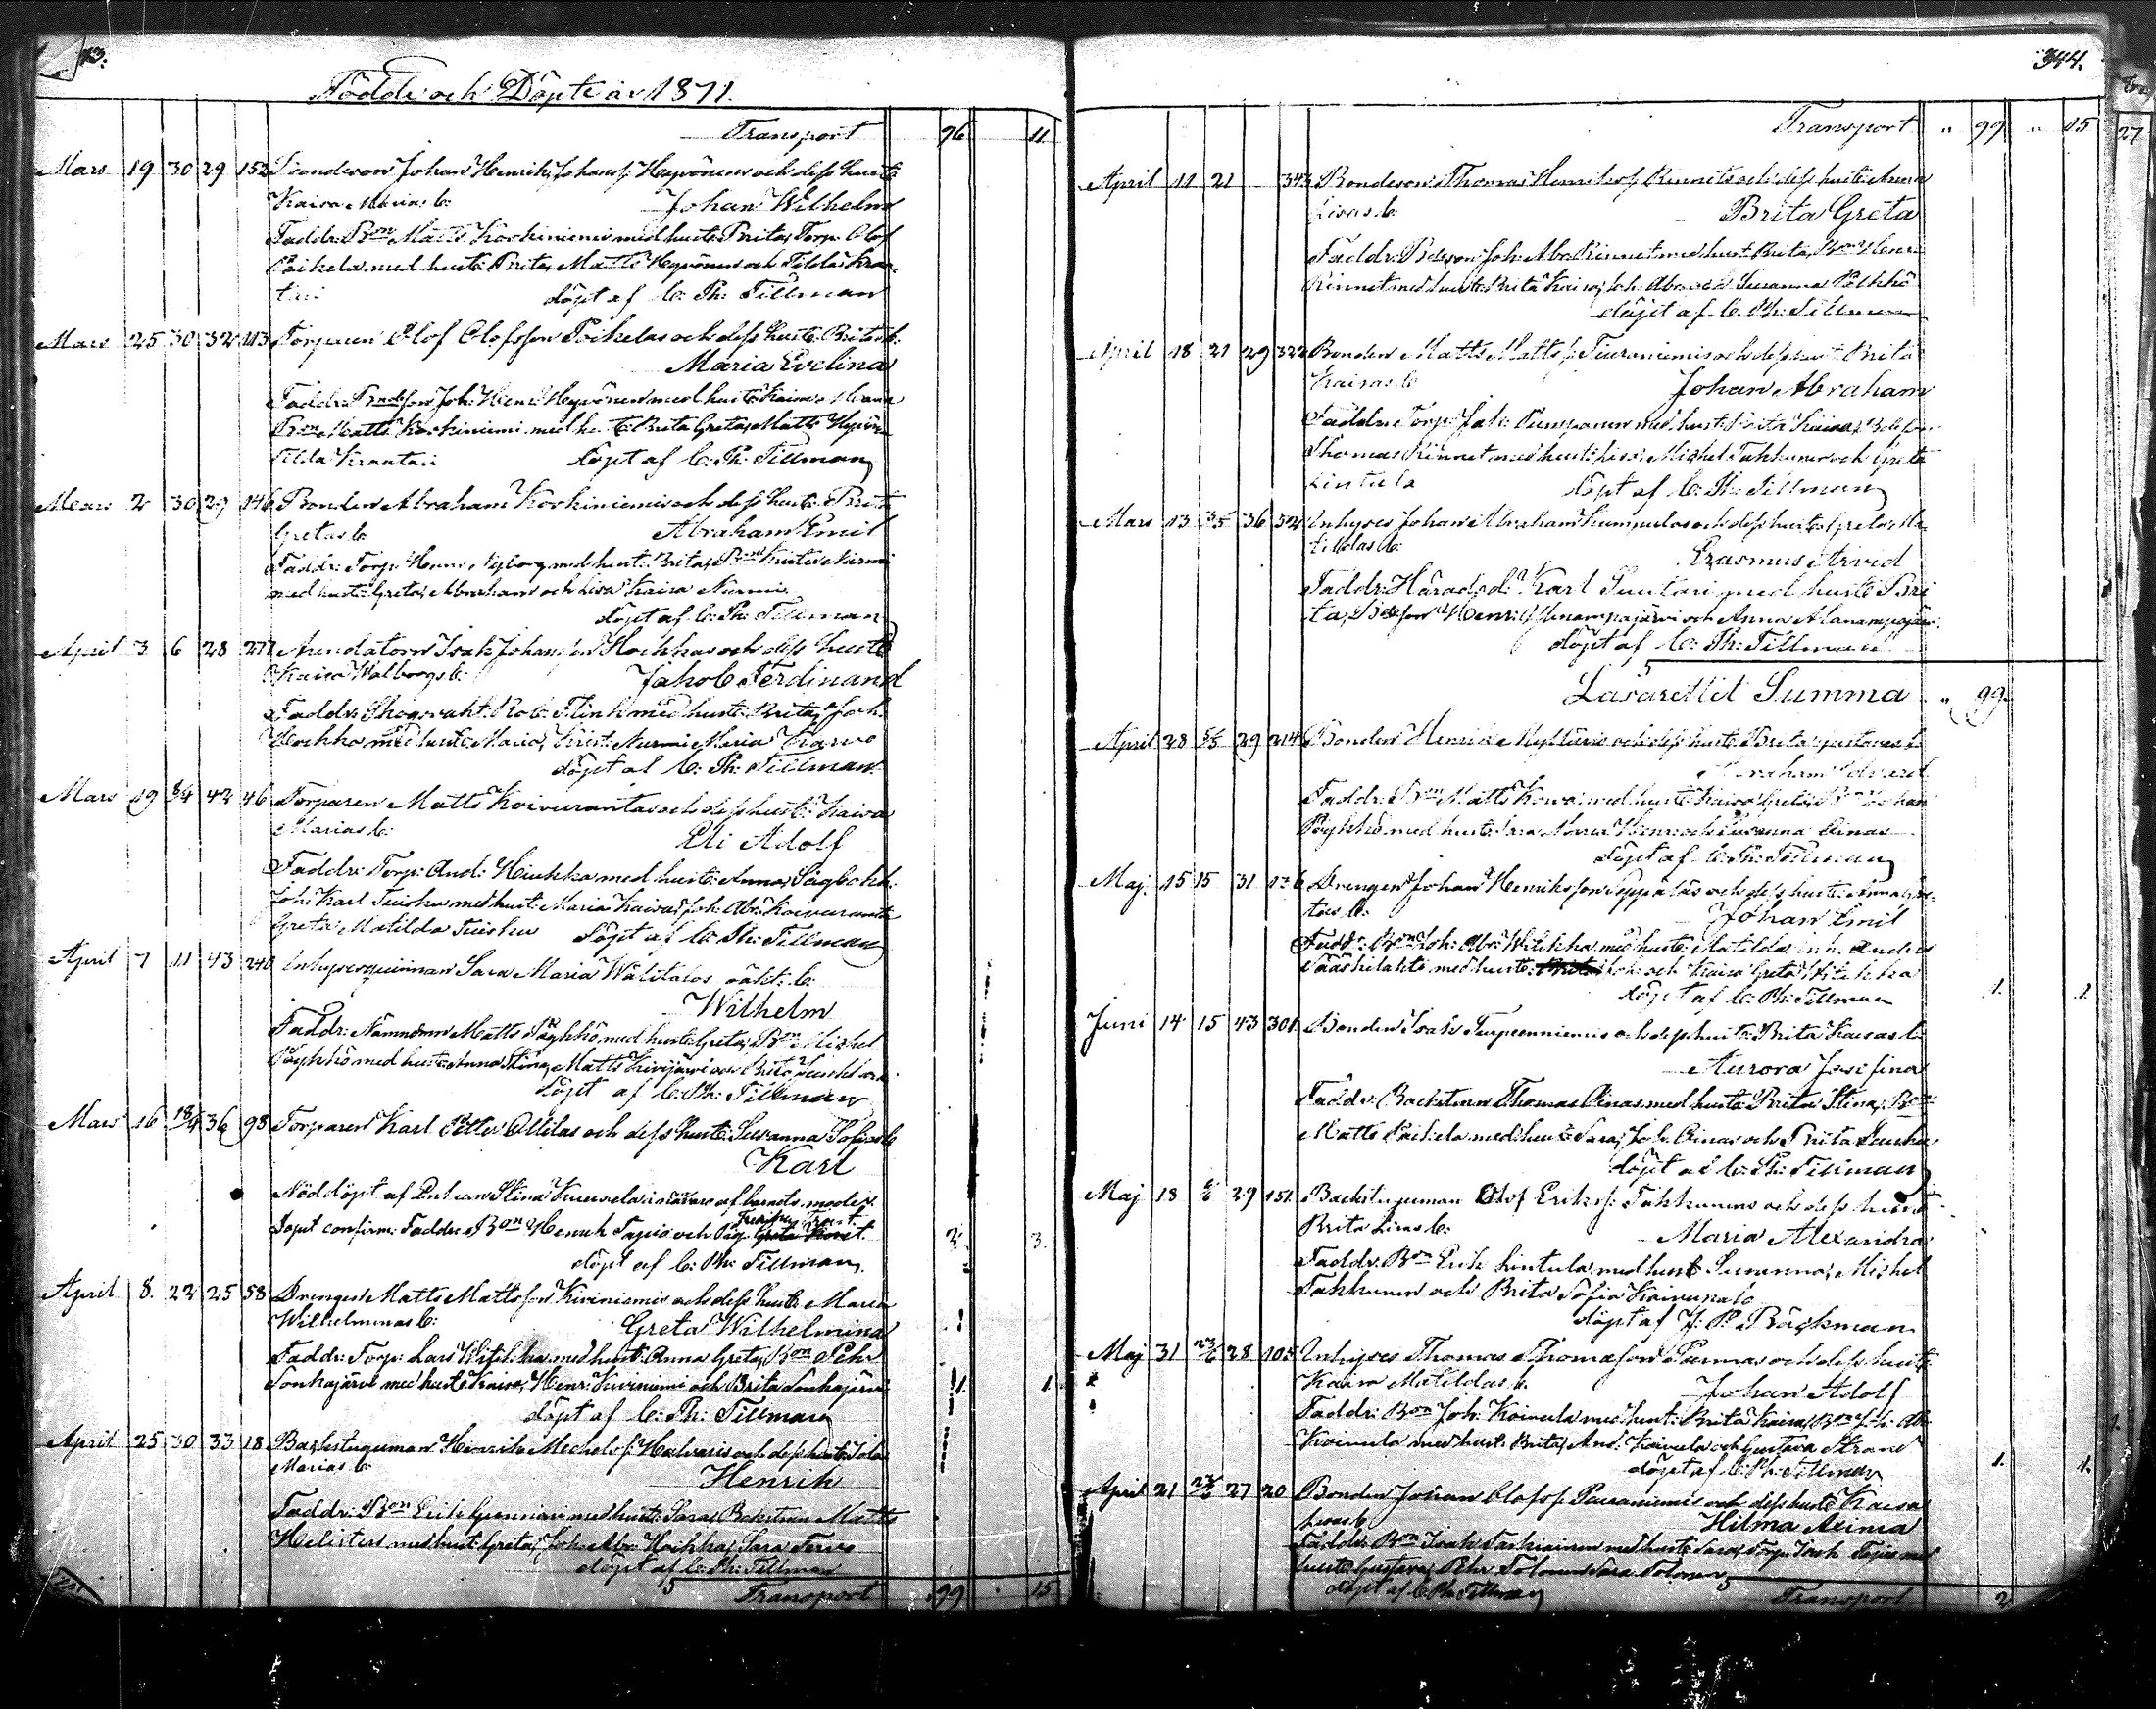 13.
Födde och Döpte år 1871.
Transport 96 11
Mars 19 30 29 152 Bondeson Johan Henrik Johans s. Heyvönens och dess hustr.
Kaisa Marias b. Johan Wilhelm
Faddr: Bon Matts Korkiniemi med hust: Brita, Torp. Olof
Poikela med hust: Brita, Matts Heyvönen och Tilda Kran-
tari döpt af C. Ph. Tillman
Mars 25 30 32 113 Torparen Olof Olofsson Poikelas och dess hust: Britas b.
Maria Evelina
Faddr: Bndesson Joh: Henr: Heyvönen med hust: Kaisa Maria
Bon Matts Korkiniemi med hust: Brita Greta, Matts Heyvön.
Tilda Krantari döpt af C. Ph. Tillman
Mars 2 30 29 146 Bonden Abraham Korkiniemis och dess hust: Brita
Gretas b. Abraham Emil
Faddr: Torp: Henr: Nyborg med hust: Brita, Bon Krister Nurmi
med hust: Greta, Abraham och Lisa Kaisa Nurmi
döpt af C. Ph. Tillman
April 3 6 28 277 Arendatorn Isak Johansson Hookkas och dess hustr.
Kaisa Walborgs b. Jakob Ferdinand
Faddr: Skogsvakt. Rob: Flink med hust: Brita, Joh:
Hookka med hust: Maria, Krist: Nurmi Maria Karvo
döpt af C. Ph. Tillman.
Mars 19 8/4 42 46 Torparen Matts Koivurantas och dess hust: Kaisa
Marias b. Eli Adolf
Faddr: Torp: And: Hiukka med hust: Anna, Sågbokh:
Joh: Karl Tuisku med hust: Maria Kaisa, Joh: Abr: Koivuranta
Greta Matilda Tuisku döpt af C. Ph. Tillman
April 7 11 43 240 Inhysesqvinnan Sara Maria Wälitalos oäkt. b.
Wilhelm
Faddr: Nämndmn Matts Pöykkö med hust: Greta, Bon Michel
Pöykkö med hust: Anna Stina, Matts Kivijärvi och Brita
döpt af C. Ph. Tillman
Mars 16 18/4 36 98 Torparen Karl Petter Ollilas och dess hust: Susanna Sofias b.
Karl
Nöddöpt af Enkan Stina Kuusela i närvaro af barnets moder.
Dopet confirm: Faddr: Bon Henrik Tapio och Pig. Greta 2 3.
döpt af C. Ph. Tillman
April 8 22 25 58 Drengen Matts Mattsson Kiviniemis och dess hust: Maria
Wilhelminas b: Greta Wilhelmina
Faddr: Torp: Lars Witikka med hust: Anna Greta, Bon Pehr
Sonkajärvi med hust: Kaisa, Henr: Kiviniemi och Brita Sonkajärvi 1. 1.
döpt af C. Ph. Tillman
April 25 30 33 18 Backstuguman Henrik Michels s. Halvaris och dess hust: Sofia
Marias b. Henrik
Faddr: Bon Erik Gunnari med hust: Sara, Bakstumn Matts
Helisten med hust: Greta, Joh: Abr: Hookka, Sara Tervo
döpt af C. Ph. Tillman
Transport 99 15
344.
Transport " 99 " 15
April 11 21 343 Bondeson Thomas Henriks s. Rinnets och dess hust: Anna
Lisas b. Brita Greta
Faddr: Bdeson Joh: Abr: Rinnet med hust: Brita, Bon Henr:
Rinnet med hust: Brita Kaisa, Joh: Abr: och Susanna Pöykkö
döpt af C. Ph. Tillman
April 18 21 29 322 Bonden Matts Matts s. Tiuraniemis och dess hust: Brita
Kaisas b. Johan Abraham
Faddr: Torp: Joh: Pumpanen med hust: Brita Kaisa, Bdeson
Thomas Rinnet med hust: Lisa, Michel Takkunen och Greta
Lintula döpt af C. Ph. Tillman
Mars 13 25 36 502 Inhyses Johan Abraham Kumpulas och dess hust: Greta Ma-
tildas b. Erasmus Arvid
Faddr: Häradsd: Karl Suutari med hust: Bri
ta, Bdeson Henr: Ylinampajärvi och Anna Alanampajärvi
döpt af C. Ph. Tillman
Lasarettet Summa " 99.
April 28 5/5 29 214 Bonden Henrik Mylläris och dess hust: Brita Gustavas b.
Abraham Edvard
Faddr: Bon Matts Kowa med hust: Kaisa Greta, Bon Johan
Pöykkö med hust: Sara Maria, Henr: och Susanna Ainas
döpt af C. Ph. Tillman
Maj 15 15 31 136 Drengen Johan Henriksson Seppäläs och dess hust: Anna Gre-
tas b. Johan Emil
Faddr: Bon Joh: Abr: Witikka med hust: Matilda Inh. Anders
Vääskilahti med hust: Joh: och Kaisa Greta Witikka
döpt af C. Ph. Tillman 1. 1.
Juni 14 15 43 301 Bonden Isak Turpeenniemis och dess hust: Brita Kaisas b.
Aurora Josefina
Faddr: Backstumn Thomas Ainas med hust: Brita Stina, Bon
Matts Poikela med hust: Sara, Joh: Ainas och Brita
döpt af C. Ph. Tillman
Maj 18 6/6 29 151 Backstuguman Olof Eriks s: Takkunens och dess hust
Brita Lisas b: Maria Alexandra
Faddr: Bon Erik Lintula med hust Susanna, Michel
Takkunen och Brita Sofia Kaivurato
döpt af J. P. Bäckman
Maj 31 23/6 28 105 Inhyses Thomas Thomasson Pannas och dess hust:
Kaisa Matildas b. Johan Adolf
Faddr: Bon Joh: Koivula med hust: Brita Kaisa, Bon Joh: Abr:
Koivula med hust: Brita, And: Koivula och Gustava Strand
döpt af C. Ph. Tillman 1. 1.
April 21 23/6 27 20 Bonden Johan Olofs s. Pauraniemis och dess hust: Kaisa
Lisas b. Hilma Axinia
Faddr: Bon Isak Tarkiainen med hust: Sara, Torp: Isak Tapio med
hust: Gustava, Pehr Tolonen Sara Tolonen
döpt af C. Ph. Tillman Transport 2
27